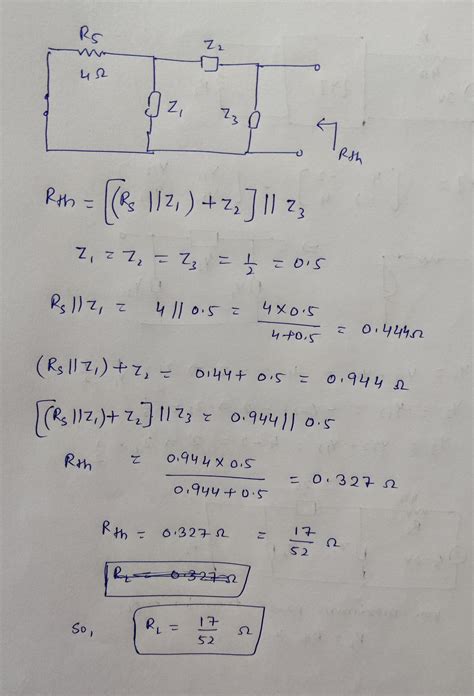 Rs
4Ω
Z2
Z1
Z3
Rth
Rth = [(Rs || Z1) + Z2] || Z3
Z1 = Z2 = Z3 = 1/2 = 0.5
Rs || Z1 = 4 || 0.5 = 4×0.5 / 4+0.5 = 0.444Ω
(Rs || Z1) + Z2 = 0.44 + 0.5 = 0.944 Ω
[(Rs || Z1) + Z2] || Z3 = 0.944 || 0.5
Rth = 0.944 × 0.5 / 0.944 + 0.5 = 0.327 Ω
Rth = 0.327 Ω = 17/52 Ω
RL = 0.327 Ω
So, RL = 17/52 Ω